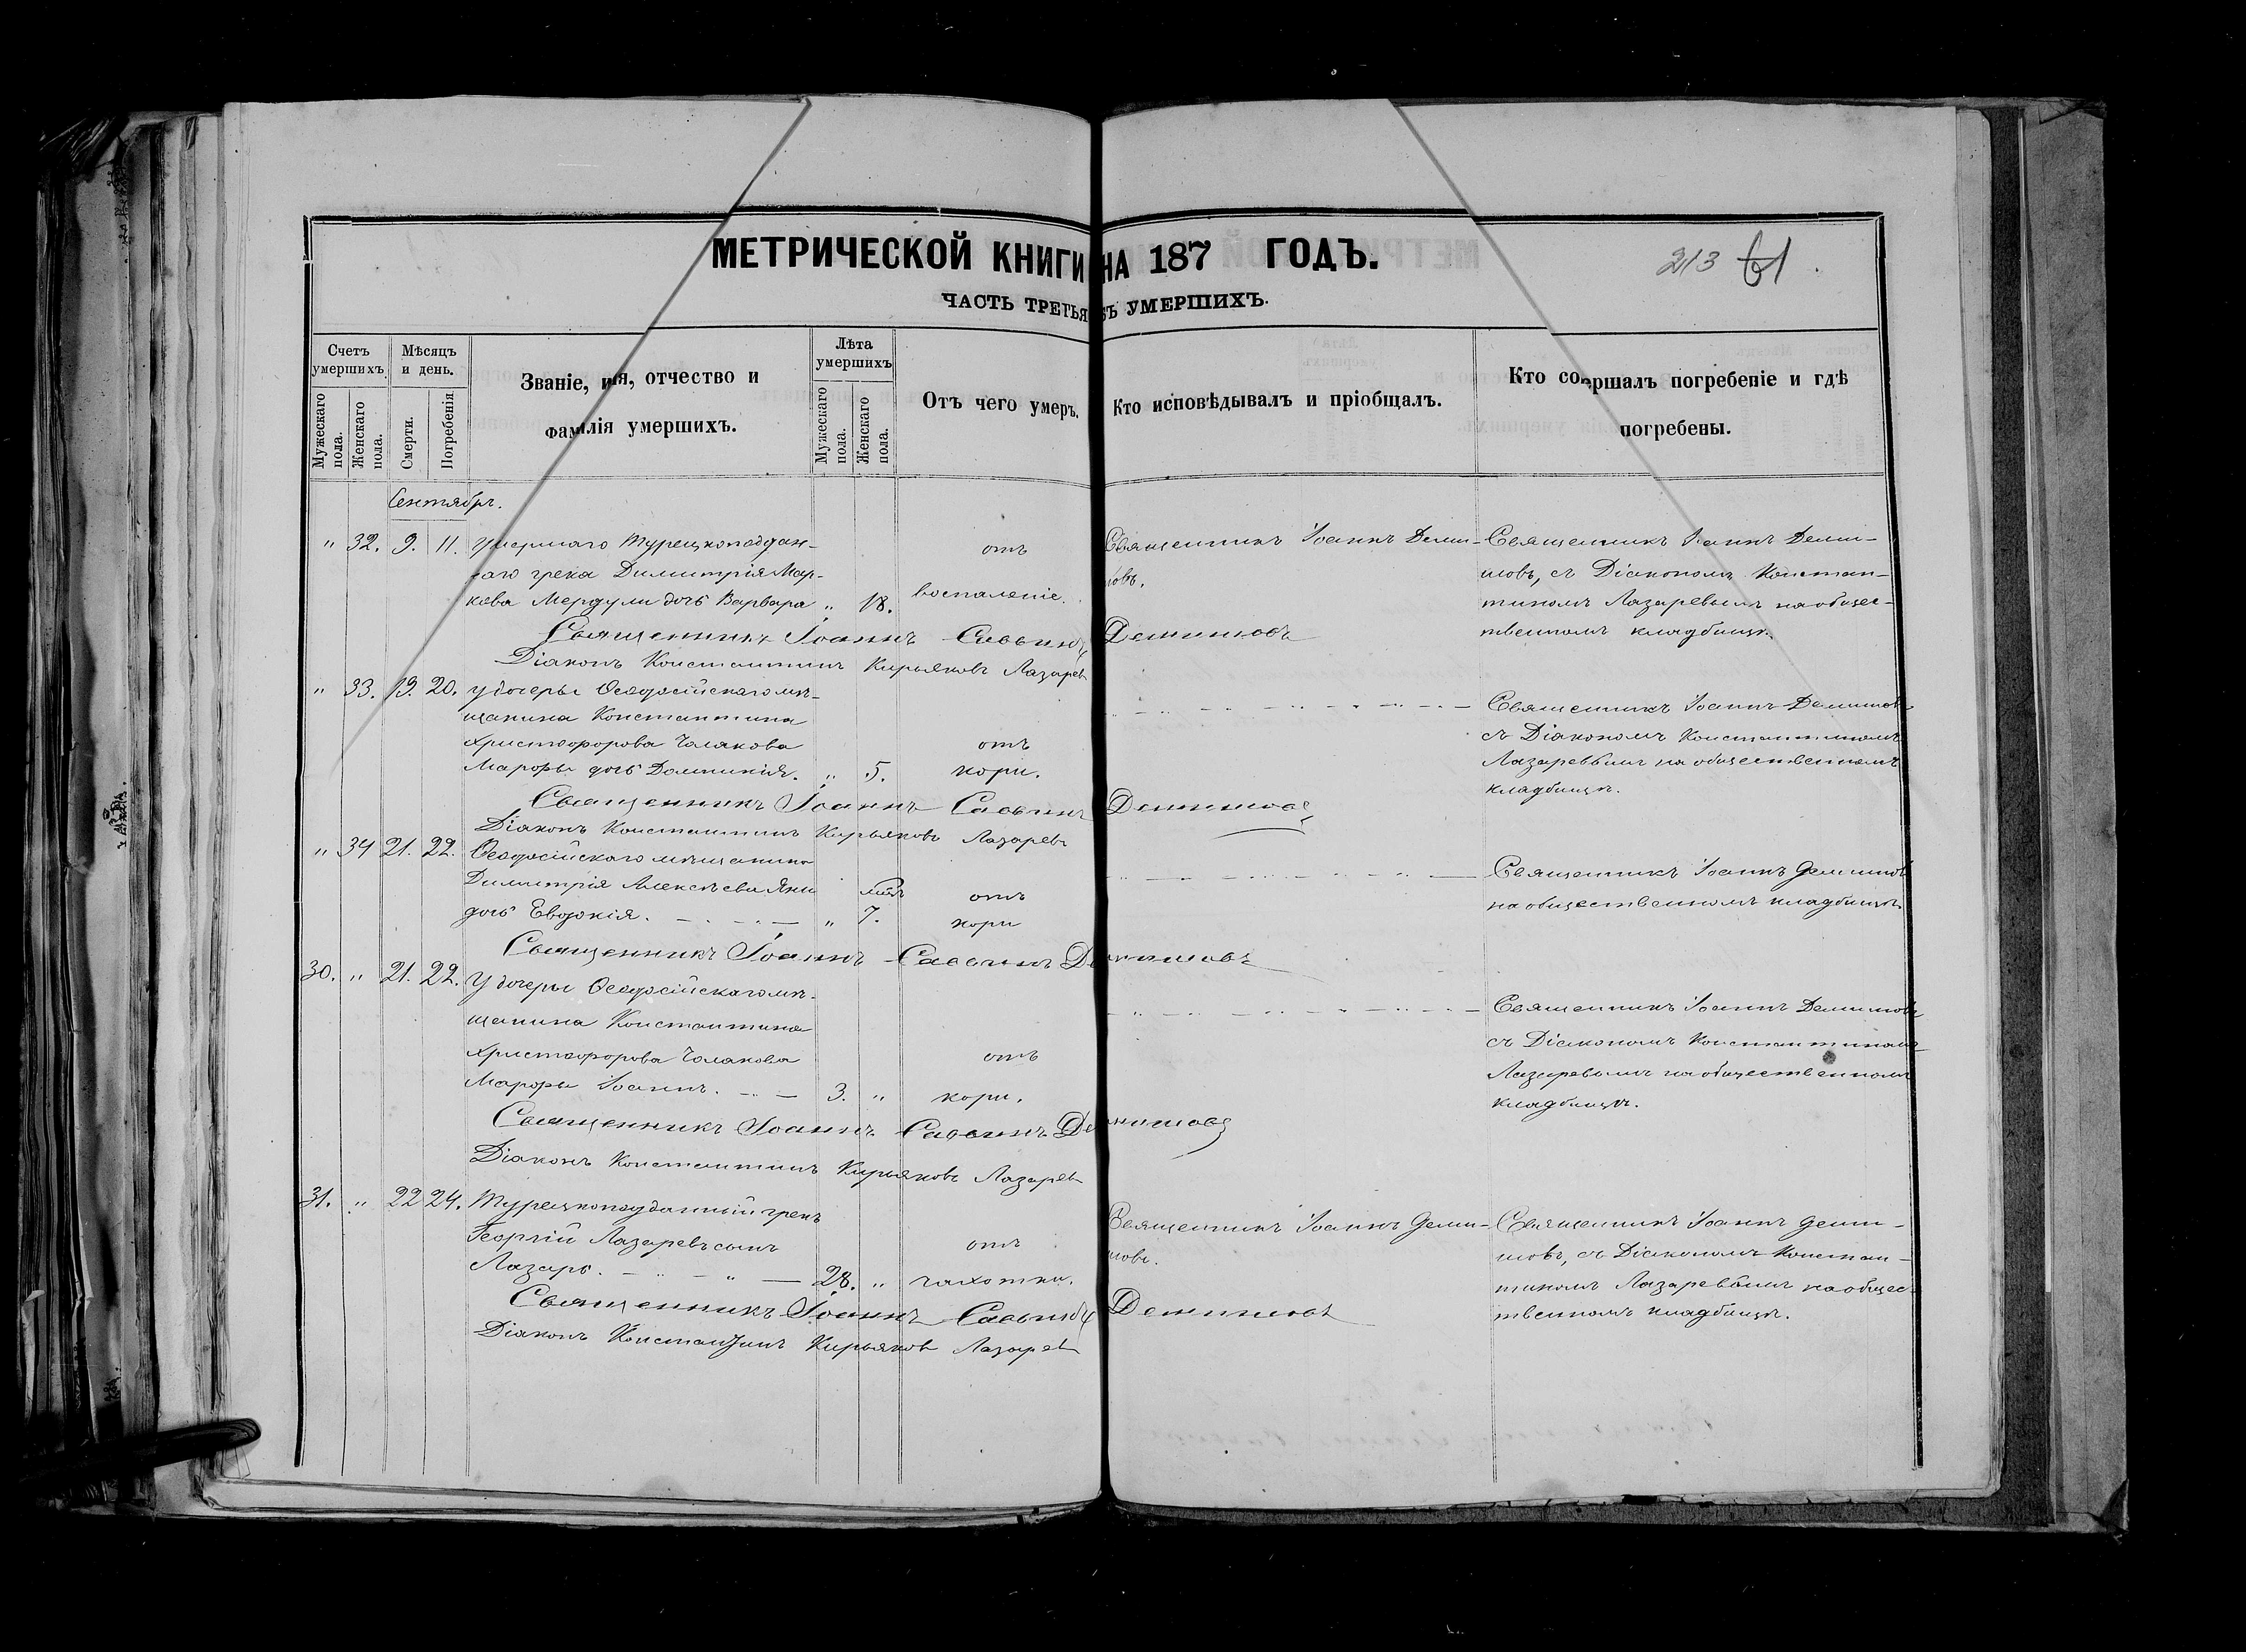 МЕТРИЧЕСКОЙ КНИГИ НА 187 ГОДЪ.
213 61
ЧАСТЬ ТРЕТЬЯ УМЕРШИХЪ.
Счетъ умершихъ.
Мужескаго пола.
Женскаго пола.
Мѣсяцъ и день.
Смерти.
Погребенія
Званіе, имя, отчество и
фамилія умершихъ.
Лѣта умершихъ
Мужескаго пола.
Женскаго пола.
Отъ чего умеръ.
Кто исповѣдывалъ и пріобщалъ.
Кто совершалъ погребеніе и гдѣ
погребены.
Сентябрь.
" 32. 9. 11. Умершаго Турецкоподдан-
наго грека Димитрія Мар-
кова Мердули дочь Варвара " 18.
отъ
воспаленіе.
Священникъ Іоаннъ Деми-
новъ.
Священникъ Іоаннъ Деми-
новъ, съ Діакономъ Констан-
тиномъ Лазаревымъ на общес-
твенномъ кладбищѣ.
Священникъ Іоаннъ Саввинъ Деминовъ
Діаконъ Константинъ Кирьяковъ Лазаревъ
" 33. 19. 20. У дочери Ѳеодосійскаго мѣ-
щанина Константина
Христофорова Чолакова
Марфы дочь Домникія. " 5.
отъ
кори.
Священникъ Іоаннъ Деминовъ
съ Діакономъ Константиномъ
Лазаревымъ на общественномъ
кладбищѣ.
Священникъ Іоаннъ Саввинъ Деминовъ
Діаконъ Константинъ Кирьяковъ Лазаревъ
" 34 21. 22. Ѳеодосійскаго мѣщанина
Димитрія Алексѣева Яни
дочь Евдокія. " 7.
отъ
кори
Священникъ Іоаннъ Деминовъ
на общественномъ кладбищѣ.
Священникъ Іоаннъ Саввинъ Деминовъ
30. " 21. 22. У дочери Ѳеодосійскаго мѣ-
щанина Константина
Христофорова Чолакова
Марфы Іоаннъ. 3. "
отъ
кори.
Священникъ Іоаннъ Деминовъ
съ Діакономъ Константиномъ
Лазаревымъ на общественномъ
кладбищѣ.
Священникъ Іоаннъ Саввинъ Деминовъ
Діаконъ Константинъ Кирьяковъ Лазаревъ
31. " 22 24. Турецкоподданный грекъ
Георгій Лазаревъ сынъ
Лазарь. 28. "
отъ
чахотки.
Священникъ Іоаннъ Деми-
новъ.
Священникъ Іоаннъ Деми-
новъ, съ Діакономъ Констан-
тиномъ Лазаревымъ на общес-
твенномъ кладбищѣ.
Священникъ Іоаннъ Саввинъ Деминовъ
Діаконъ Константинъ Кирьяковъ Лазаревъ